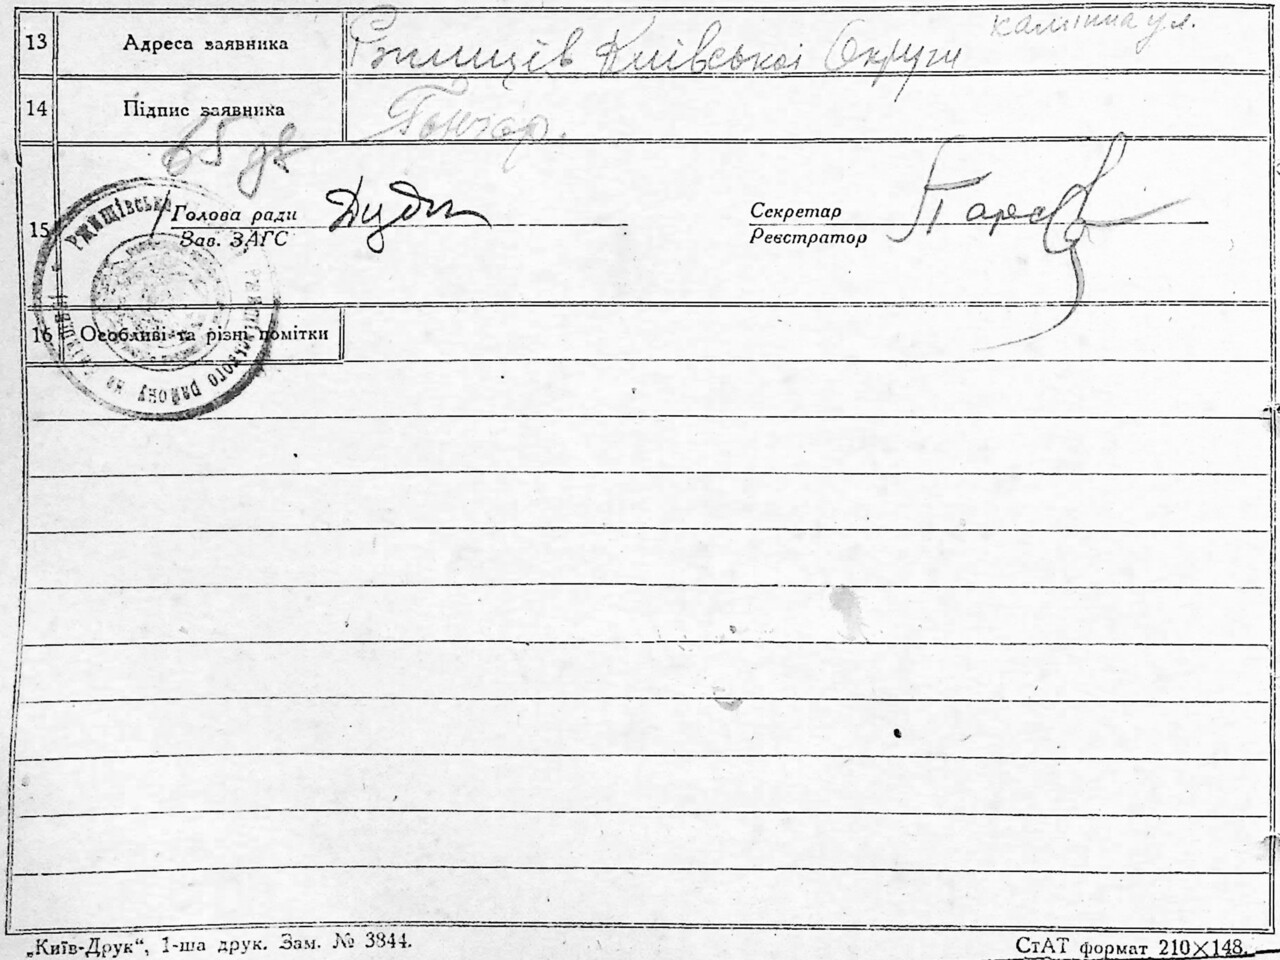 калінна ул.
13 Адреса заявника Ржищів Київської Округи
14 Підпис заявника Гончар.
65
15 Голова ради
Зав. ЗАГС
Секретар
Реєстратор
РЖИЩІВСЬКА
РАЙОНУ НА
16 Особливі та різні помітки
„Київ-Друк“, 1-ша друк. Зам. № 3844.
СтАТ формат 210×148.